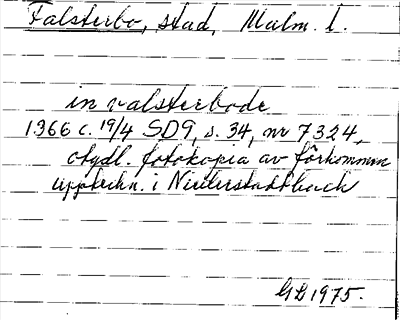 Falsterbo, stad, Malm. l.
in valsterbode
1366 c. 19/4 SD9, s. 34, nr 7324,
otydl. fotokopia av förkommen
uppteckn. i Niederstadtbuch
GB 1975.